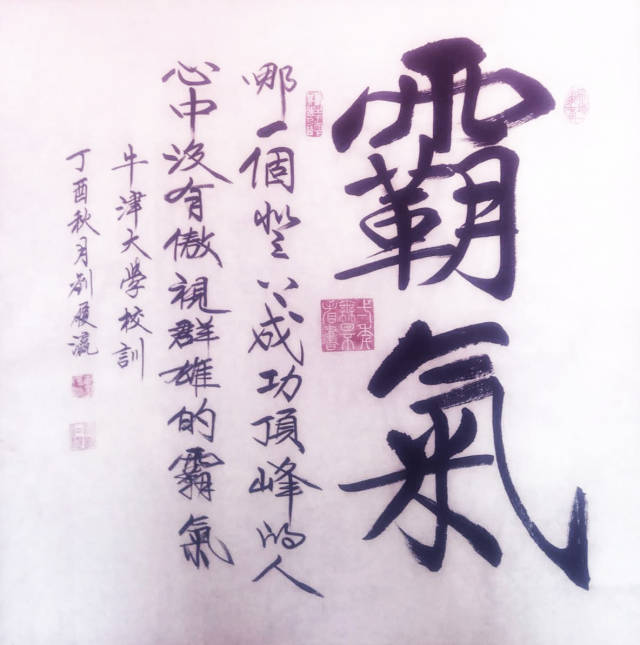 霸氣
哪一個登成功頂峰的人
心中沒有傲視群雄的霸氣
牛津大學校訓
丁酉秋月